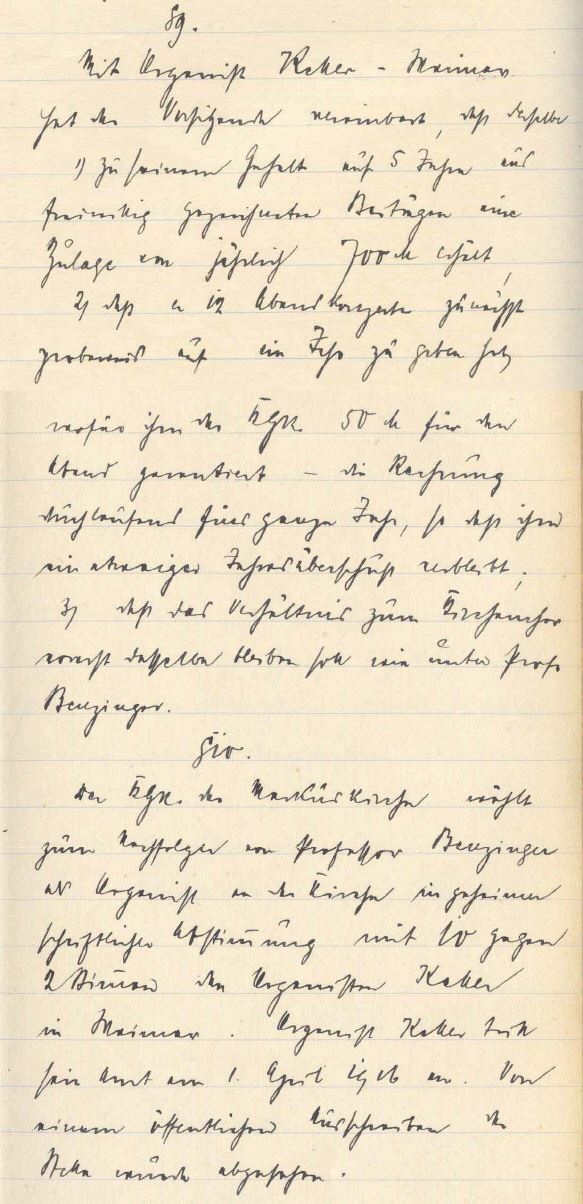 §9.
Mit Organist Keller - Weimar
hat der Vorsitzende vereinbart, daß derselbe
1) zu seinem Gehalt auf 5 Jahre aus
freiwillig gezeichneten Beiträgen eine
Zulage von jährlich 700 M erhält,
2) daß er 12 Abendkonzerte zunächst
probeweis auf ein Jahr zu geben hat,
wofür ihm der KGR. 50 M für den
Abend garantiert – die Rechnung
durchlaufend fürs ganze Jahr, so daß ihm
ein etwaiger Jahresüberschuß verbleibt;
3) daß das Verhältnis zum Kirchenchor
vorerst dasselbe bleiben soll wie unter Profs
Benzinger.
§10.
Der KGR. der Markuskirche wählt
zum Nachfolger von Professor Benzinger
als Organist an der Kirche in geheimer
schriftlicher Abstimmung mit 10 gegen
2 Stimmen den Organisten Keller
in Weimar. Organist Keller tritt
sein Amt am 1. April 1916 an. Von
einem öffentlichen Ausschreiben der
Stelle wurde abgesehen.